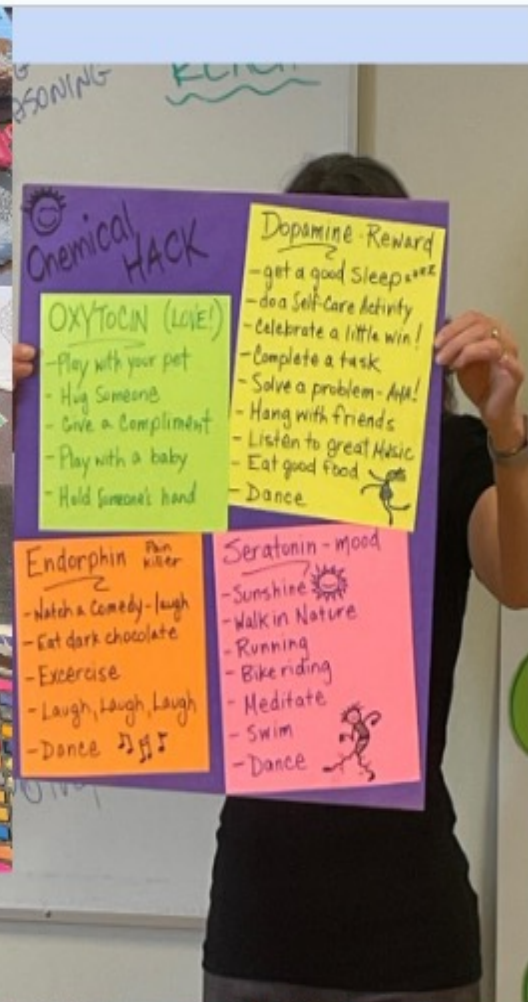 ASONING
Chemical
HACK
OXYTOCIN (LOVE!)
-Play with your pet
- Hug Someone
- Give a Compliment
- Play with a baby
- Hold Someone's hand
Dopamine - Reward
- get a good Sleep zzzz
- do a Self-Care Activity
- Celebrate a little win!
- Complete a task
- Solve a problem - AHA!
- Hang with friends
- Listen to great Music
- Eat good food
- Dance
Endorphin Pain
killer
- Watch a Comedy - laugh
- Eat dark chocolate
- Excercise
- Laugh, Laugh, Laugh
- Dance
Seratonin - mood
- Sunshine
- Walk in Nature
- Running
- Bike riding
- Meditate
- Swim
- Dance